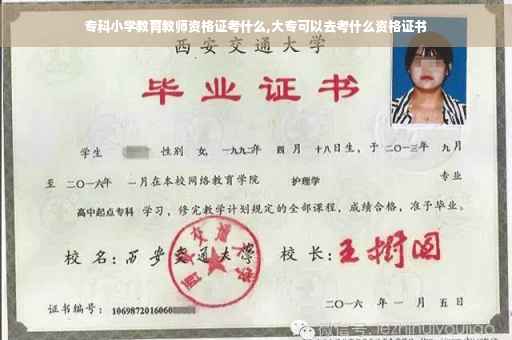 专科小学教育教师资格证考什么,大专可以去考什么资格证书
西安交通大学
毕业证书
学生 性别 女, 一九九二年 四 月 十八日生, 于 二〇一三年 九月
至 二〇一六年 一月在本校网络教育学院 护理学 专业
高中起点专科 学习, 修完教学计划规定的全部课程, 成绩合格, 准予毕业。
校 名: 西安交通大学 校 长: 王树国
西安交通大学
证书编号: 1069872016060
二〇一六 年 一 月 五 日
微信号: lezhinuiyoujiao